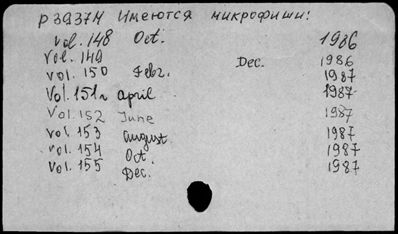 P 3937M Имеются микрофиши:
Vol. 148 Oct. 1986
Vol. 149 Dec. 1986
Vol. 150 Febr. 1987
Vol. 151 april 1987
Vol. 152 June 1987
Vol. 153 august 1987
Vol. 154 Oct. 1987
Vol. 155 Dec. 1987